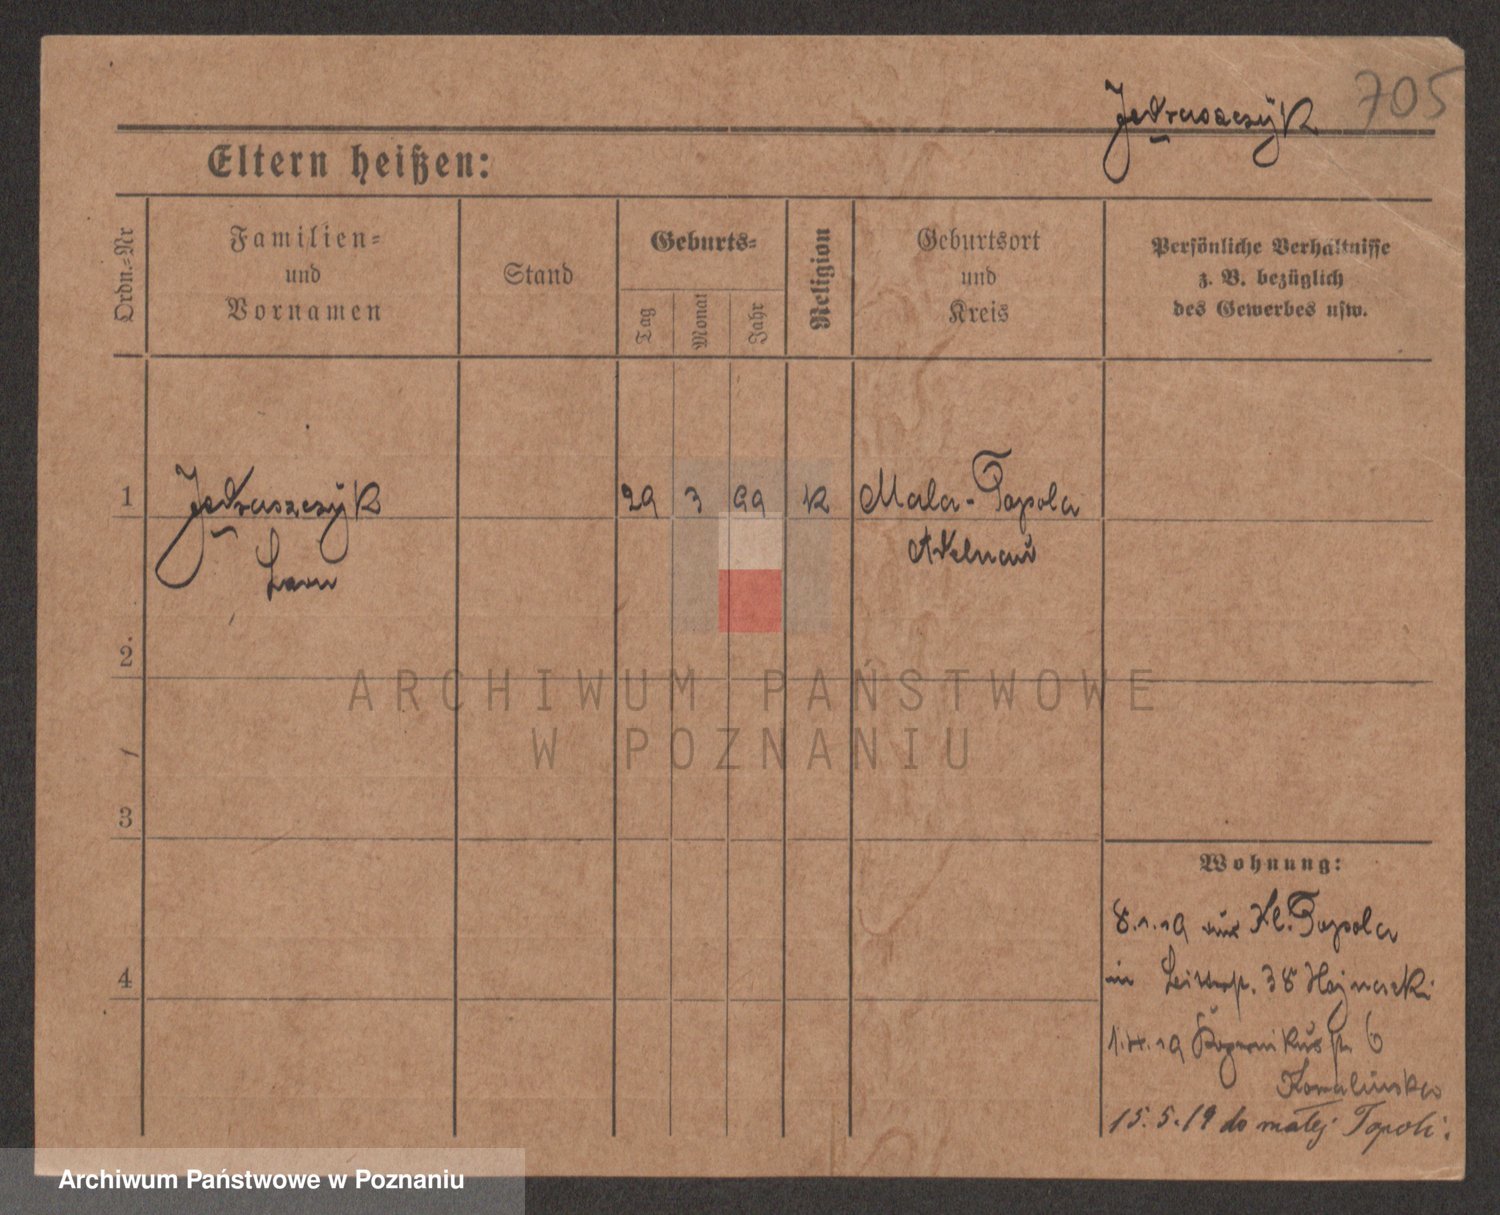 705
Jedraszczÿk
Eltern heißen:
Ordn.-Nr
Familien-
und
Vornamen
Stand
Geburts-
Tag
Monat
Jahr
Religion
Geburtsort
und
Kreis
Persönliche Verhältnisse
z. B. bezüglich
des Gewerbes usw.
1 Jedraszczÿk 29 3 99 K Mala-Topola
Leon Adelnau
2.
3
4
Wohnung:
8.1.19 aus Kl. Topola
in 38 Hajnacki
19 Kopernikusstr 6
Kowalinska
15.5.19 do małej Topoli.
ARCHIWUM PAŃSTWOWE
W POZNANIU
Archiwum Państwowe w Poznaniu